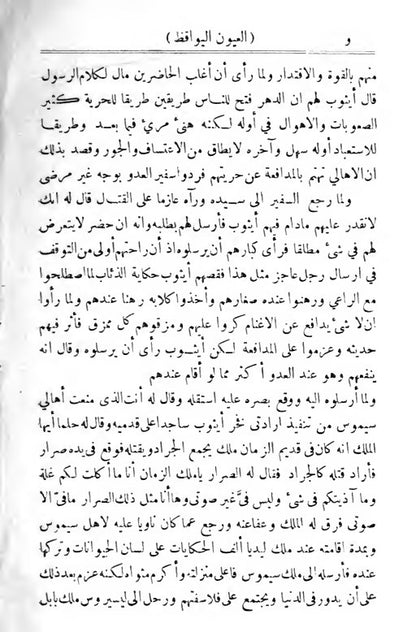 و ( العيون اليواقظ )
منهم بالقوة والاقتدار ولما رأى أن أغلب الحاضرين مال لكلام الرسول
قال أيثوب لهم ان الدهر فتح للناس طريقين طريقا للحرية كثير
الصعوبات والاهوال فى أوله لكنه هنىء مرىء فيما بعد وطريقا
للاستعباد أوله سهل وآخره لايطاق من الاعتساف والجور وقصد بذلك
ان الاهالى تهتم بالمدافعة عن حريتهم فردوا سفير العدو بوجه غير مرضى
ولما رجع السفير الى سيده ورآه عازما على القتال قال له انك
لا تقدر عليهم مادام فيهم أيثوب فأرسل لهم بطلبه وانه ان حضر لايتعرض
لهم فى شئ مطلقا فرأى كبارهم أن يرسلوه اذ أن راحتهم أولى من التوقف
فى ارسال رجل عاجز مثل هذا فقصهم أيثوب حكاية الذئاب لما اصطلحوا
مع الراعي ورهنوا عنده صغارهم وأخذوا كلابه رهنا عندهم ولما رأوا
ان لا شئ يدافع عن الاغنام كروا عليهم ومزقوهم كل ممزق فأثر فيهم
حديثه وعزموا على المدافعة لكن أيثوب رأى أن يرسلوه وقال انه
ينفعهم وهو عند العدو أكثر مما لو أقام عندهم
ولما أرسلوه اليه ووقع بصره عليه استقله وقال له أنت الذى منعت أهالي
سيموس من تنفيذ ارادتى فخر أيثوب ساجدا على قدميه وقال له حلما أيها
الملك انه كان فى قديم الزمان ملك يجمع الجراد ويقتله فوقع فى يده صرار
فأراد قتله كالجراد فقال له الصرار ياملك الزمان أنا ما أكلت لكم غلة
وما آذيتكم فى شئ وليس فىّ غير صوتى وها أنا مثل ذلك الصرار مافىّ الا
صوتى فرق له الملك وعفا عنه ورجع عما كان ناويا عليه لاهل سيموس
وبمدة اقامته عند ملك ليديا ألف الحكايات على لسان الحيوانات وتركها
عنده فأرسله الى ملك سيموس فاعلى منزلته وأكرم مثواه لكنه عزم بعد ذلك
على أن يدور فى الدنيا ويجتمع على فلاسفتهم ورحل الى ليسيروس ملك بابل